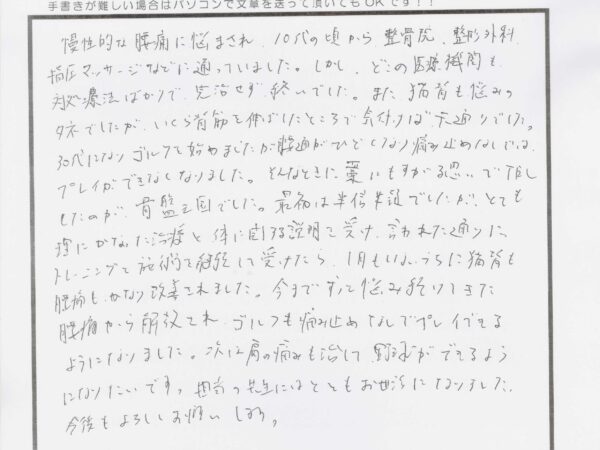 手書きが難しい場合はパソコンで文章を送って頂いてもOKです！！
慢性的な腰痛に悩まされ、10代の頃から整骨院、整形外科
指圧マッサージなどに通っていました。しかし、どこの医療機関も、
対処療法ばかりで、完治せず終いでした。また、猫背も悩みの
タネでしたが、いくら背筋を伸ばしたところで気付けば元通りでした。
30代になりゴルフを始めましたが腰痛がひどくなり痛み止めなしでは、
プレイができなくなりました。そんなときに藁にもすがる思いで
したのが、骨盤王国でした。最初は半信半疑でしたが、とても
理にかなった治療と体に関する説明を受け、言われた通りに、
トレーニングと施術を継続して受けたら、1月もしないうちに猫背も
腰痛もかなり改善されました。今までずっと悩み続けてきた
腰痛から解放され、ゴルフも痛み止めなしでプレイできる
ようになりました。次は肩の痛みも治して野球ができるよう
になりたいです。担当の先生にはとてもお世話になりました。
今後もよろしくお願いします。